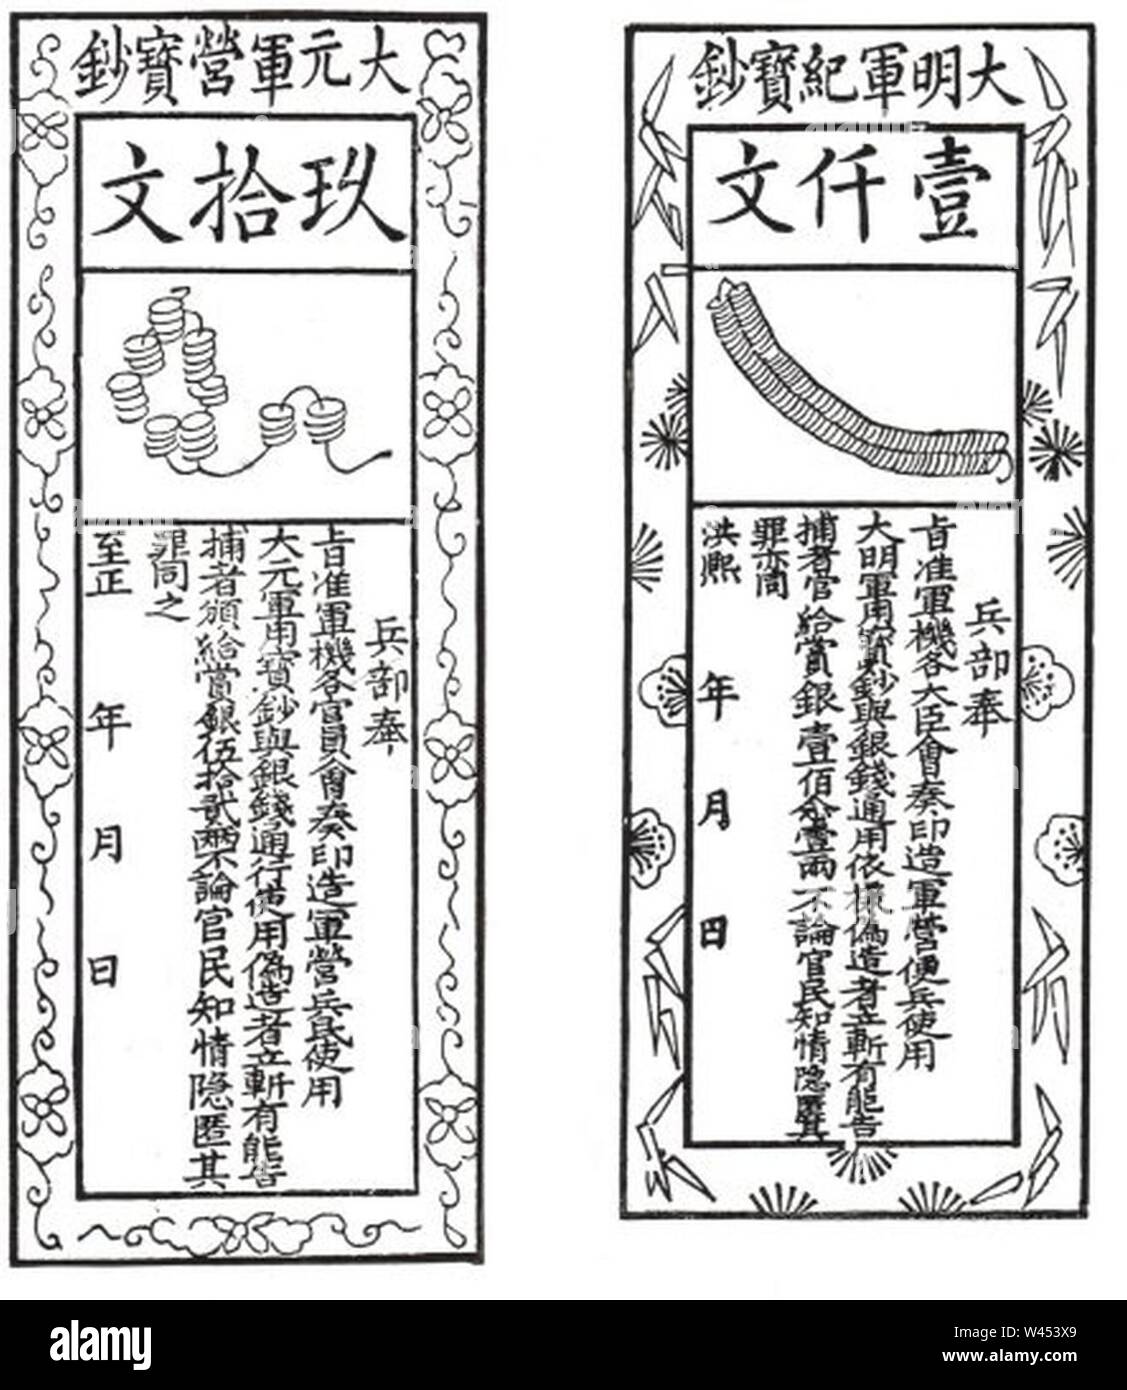 大元軍營寶鈔
玖拾文
兵部奉
旨准軍機各官員會奏印造軍營兵民使用
大元軍用寶鈔與銀錢通行使用偽造者立斬有能告
捕者頒給賞銀伍拾貳兩不論官民知情隐匿其
罪同之
至正 年 月 日
大明軍紀寶鈔
壹仟文
兵部奉
旨准軍機各大臣會奏印造軍營便兵使用
大明軍用寶鈔與銀錢通用依樣偽造者立斬有能告
捕者官給賞銀壹佰壹兩不論官民知情隐匿其
罪亦同
洪熙 年 月 日
alamy
W453X9
www.alamy.com